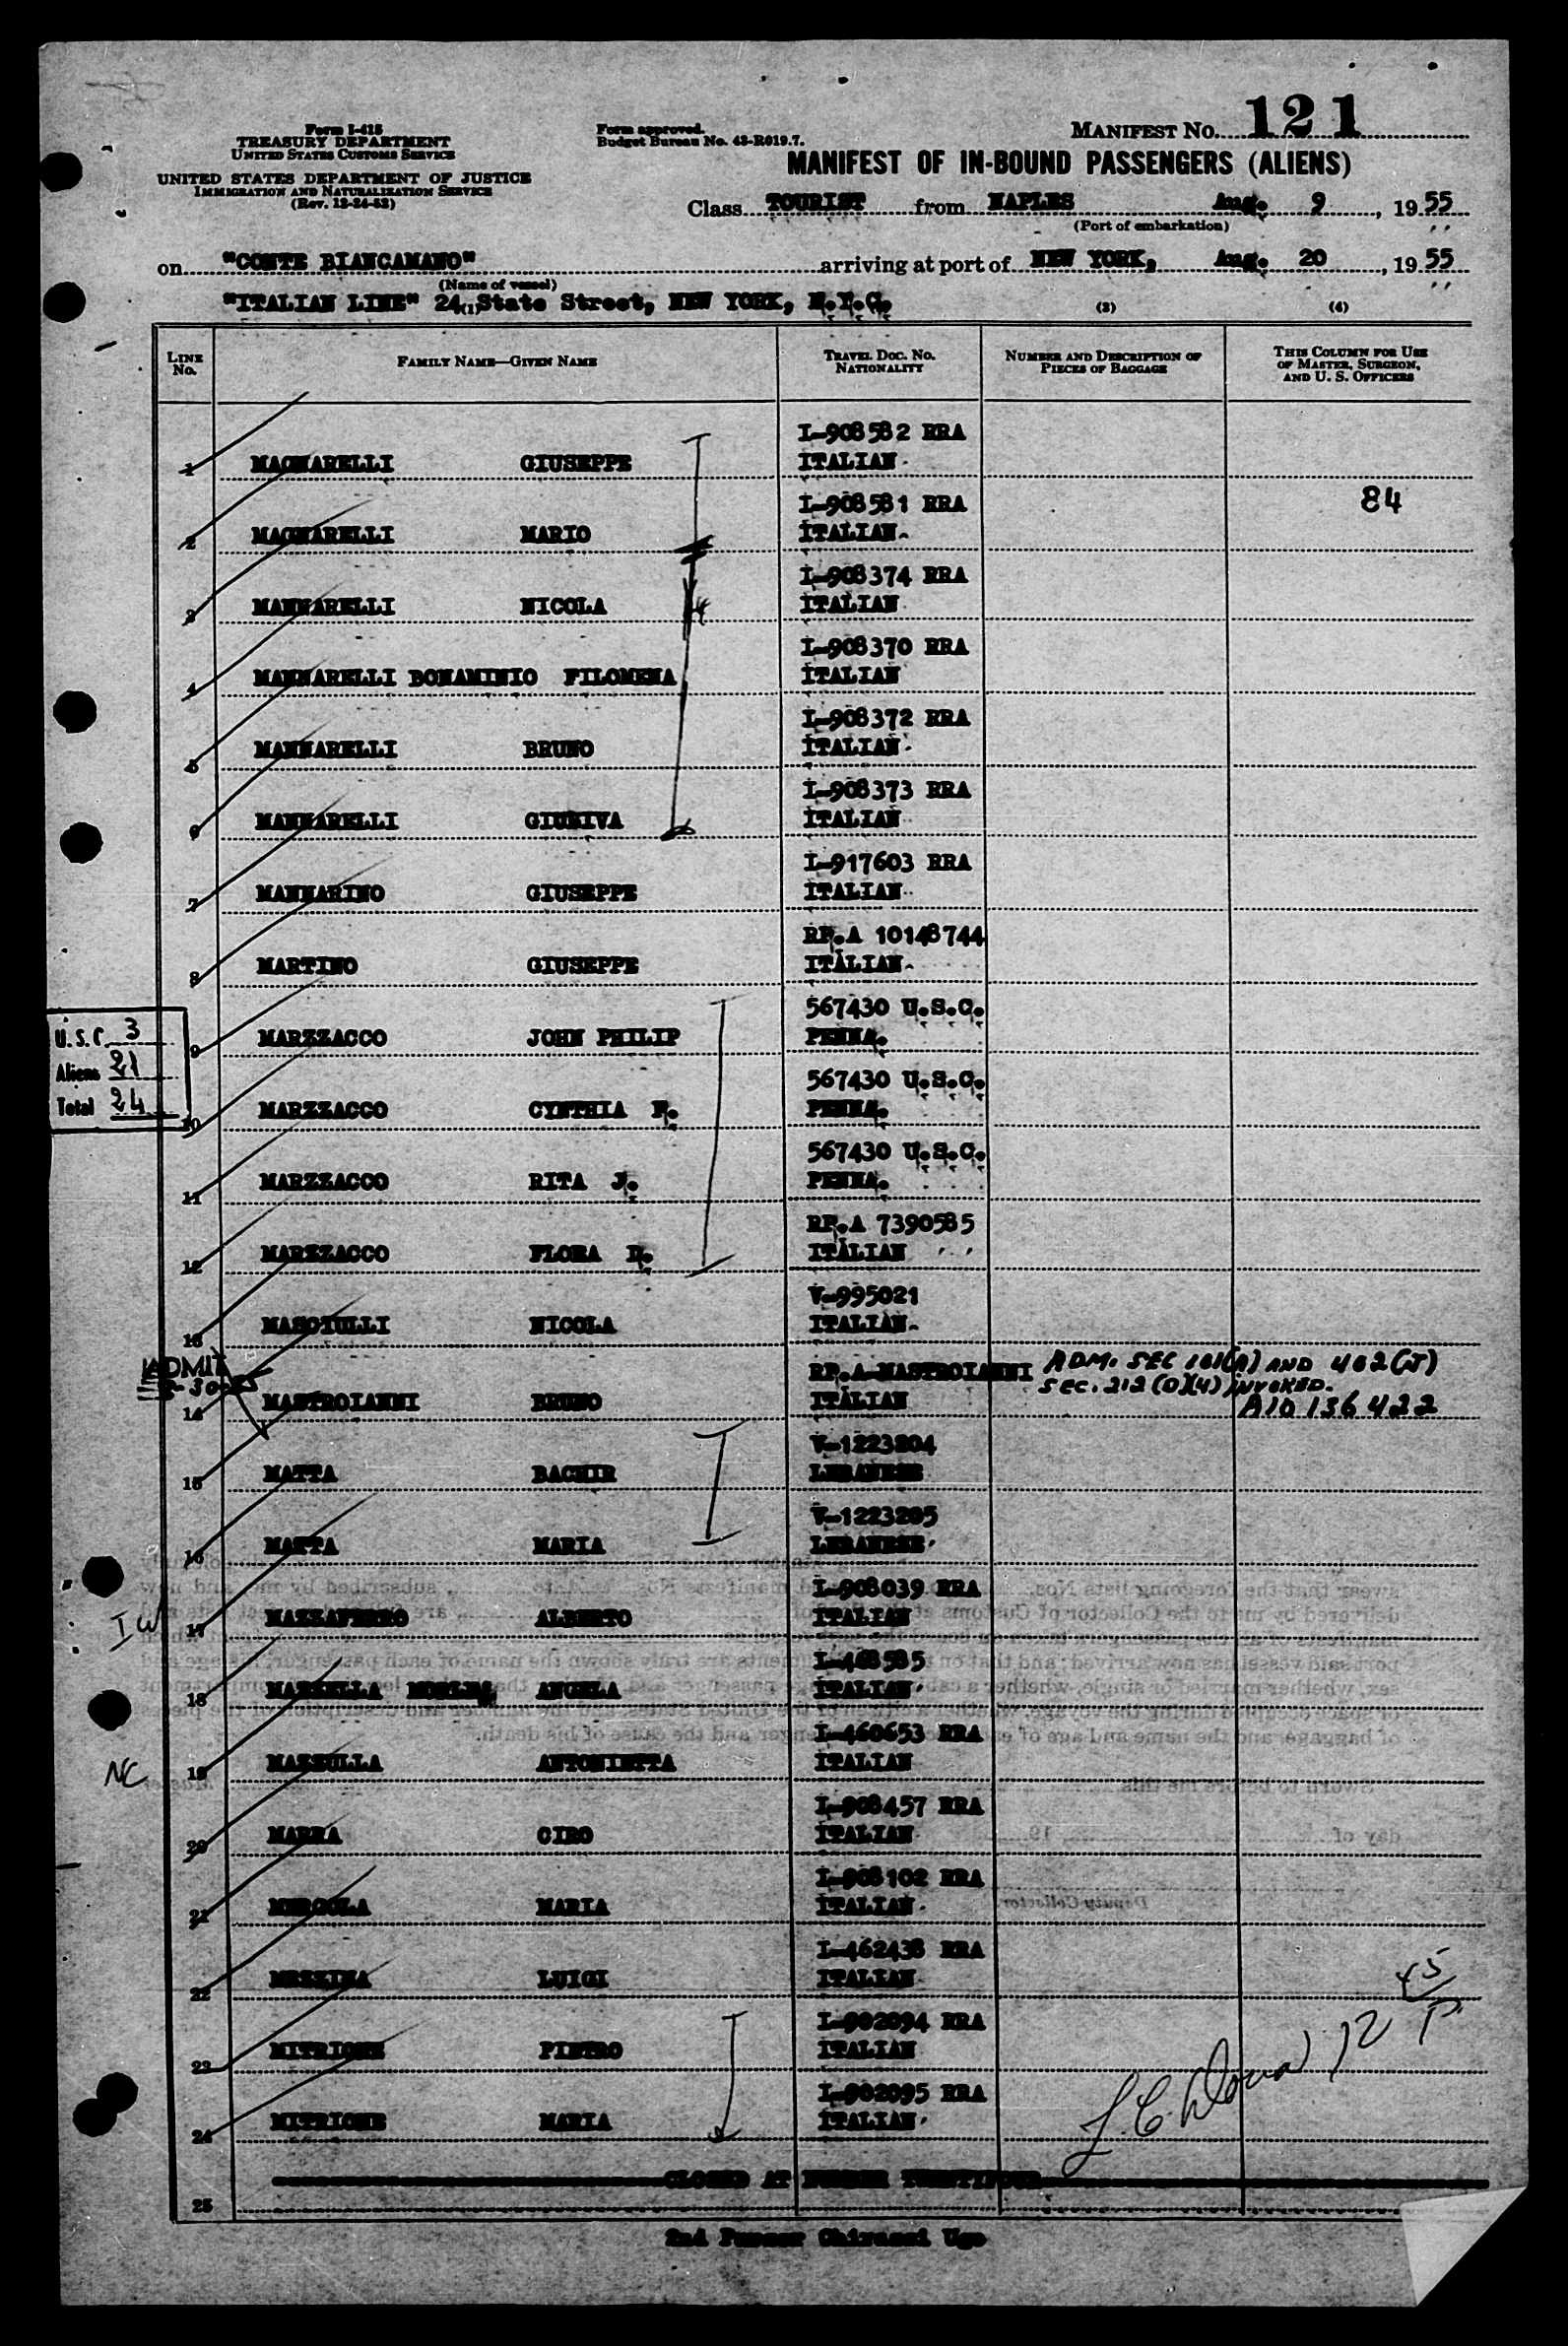 Form I-418
TREASURY DEPARTMENT
UNITED STATES CUSTOMS SERVICE
UNITED STATES DEPARTMENT OF JUSTICE
IMMIGRATION AND NATURALIZATION SERVICE
(Rev. 12-24-52)
Form approved.
Budget Bureau No. 43-R019.7.
MANIFEST NO. 121
MANIFEST OF IN-BOUND PASSENGERS (ALIENS)
Class TOURIST from NAPLES Aug. 9, 1955
(Port of embarkation)
on "CONTE BIANCAMANO" arriving at port of NEW YORK, Aug. 20, 1955
(Name of vessel)
"ITALIAN LINE" 24 State Street, NEW YORK, N.Y.C.
(1) (3) (4)
LINE NO. FAMILY NAME—GIVEN NAME TRAVEL DOC. NO. NATIONALITY NUMBER AND DESCRIPTION OF PIECES OF BAGGAGE THIS COLUMN FOR USE OF MASTER, SURGEON, AND U. S. OFFICERS
I-908582 RRA
1 MAGNARELLI GIUSEPPE ITALIAN
I-908581 RRA 84
2 MAGNARELLI MARIO ITALIAN
I-908374 RRA
3 MANNARELLI NICOLA ITALIAN
I-908370 RRA
4 MANNARELLI BONAMINIO FILOMENA ITALIAN
I-908372 RRA
5 MANNARELLI BRUNO ITALIAN
I-908373 RRA
6 MANNARELLI ITALIAN
I-917603 RRA
7 MANNARINO GIUSEPPE ITALIAN
RP.A 10148744
8 MARTINO GIUSEPPE ITALIAN
567430 U.S.C.
9 MARZZACCO JOHN PHILIP PENNA.
567430 U.S.C.
10 MARZZACCO CYNTHIA F. PENNA.
567430 U.S.C.
11 MARZZACCO RITA J. PENNA.
RP.A 7390585
12 MARZZACCO FLORA D. ITALIAN
V-995021
13 MASCIULLI NICOLA ITALIAN
U.S.C. 3
Aliens 21
Total 24
ADMIT
RP.A MASTROIANNI ADM. SEC 101(A) AND 402(J)
SEC. 212(D)(4) INVOKED.
14 MASTROIANNI BRUNO ITALIAN A10 136 422
V-1223204
15 MATTA BACHIR LEBANESE
V-1223205
16 MATTA MARIA LEBANESE
I-908039 RRA
IW 17 MAZZAFERRO ALBERTO ITALIAN
I-468585
18 ANGELA ITALIAN
I-460653 RRA
NC 19 MAZZULLA ANTONIETTA ITALIAN
I-908457 RRA
20 CIRO ITALIAN
I-908102 RRA
21 MERCOLA MARIA ITALIAN
I-462438 RRA
22 MESSINA LUIGI ITALIAN
I-902094 RRA
23 MITRIONE PIETRO ITALIAN
I-902095 RRA
24 MITRIONE MARIA ITALIAN
CLOSED AT NUMBER TWENTYFOUR
25
2nd Purser Chirassi Ugo